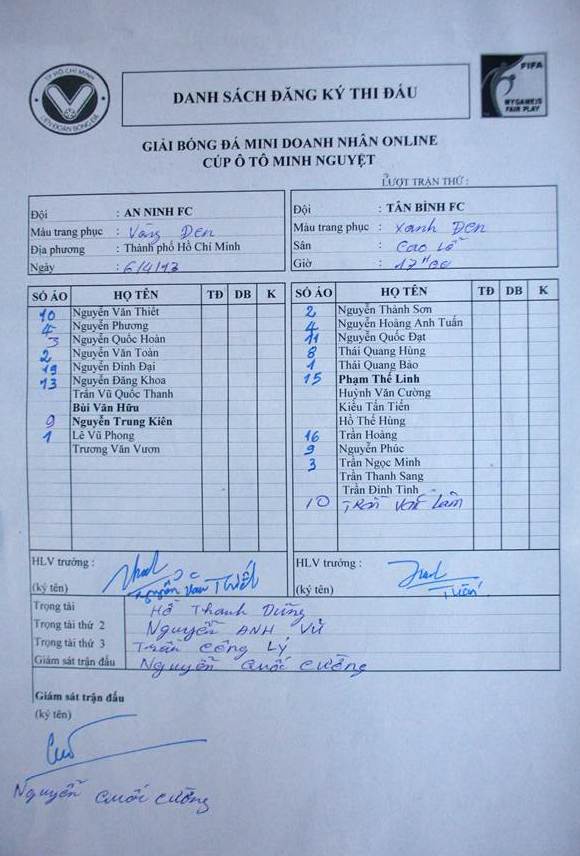 TP HỒ CHÍ MINH
LIÊN ĐOÀN BÓNG ĐÁ
DANH SÁCH ĐĂNG KÝ THI ĐẤU
FIFA
MY GAME IS
FAIR PLAY
GIẢI BÓNG ĐÁ MINI DOANH NHÂN ONLINE
CÚP Ô TÔ MINH NGUYỆT
LƯỢT TRẬN THỨ :
Đội : AN NINH FC
Màu trang phục : Vàng Đen
Địa phương : Thành phố Hồ Chí Minh
Ngày : 6/4/13
Đội : TÂN BÌNH FC
Màu trang phục : Xanh Đen
Sân : Cao Lỗ
Giờ : 17H00
SỐ ÁO HỌ TÊN TĐ DB K
10 Nguyễn Văn Thiết
4 Nguyễn Phương
3 Nguyễn Quốc Hoàn
2 Nguyễn Văn Toàn
19 Nguyễn Đình Đại
13 Nguyễn Đăng Khoa
Trần Vũ Quốc Thanh
Bùi Văn Hữu
9 Nguyễn Trung Kiên
1 Lê Vũ Phong
Trương Văn Vươn
SỐ ÁO HỌ TÊN TĐ DB K
2 Nguyễn Thành Sơn
4 Nguyễn Hoàng Anh Tuấn
11 Nguyễn Quốc Đạt
8 Thái Quang Hùng
1 Thái Quang Bảo
15 Phạm Thế Linh
Huỳnh Văn Cường
Kiều Tấn Tiến
Hồ Thế Hùng
16 Trần Hoàng
9 Nguyễn Phúc
3 Trần Ngọc Minh
Trần Thanh Sang
Trần Đình Tình
10 Trần Văn Lâm
HLV trưởng :
(ký tên) Nguyễn Văn Thiết
HLV trưởng :
(ký tên) Tuấn
Trọng tài Hồ Thanh Dũng
Trọng tài thứ 2 Nguyễn Anh Vũ
Trọng tài thứ 3 Trần Công Lý
Giám sát trận đấu Nguyễn Quốc Cường
Giám sát trận đấu
(ký tên)
Nguyễn Quốc Cường